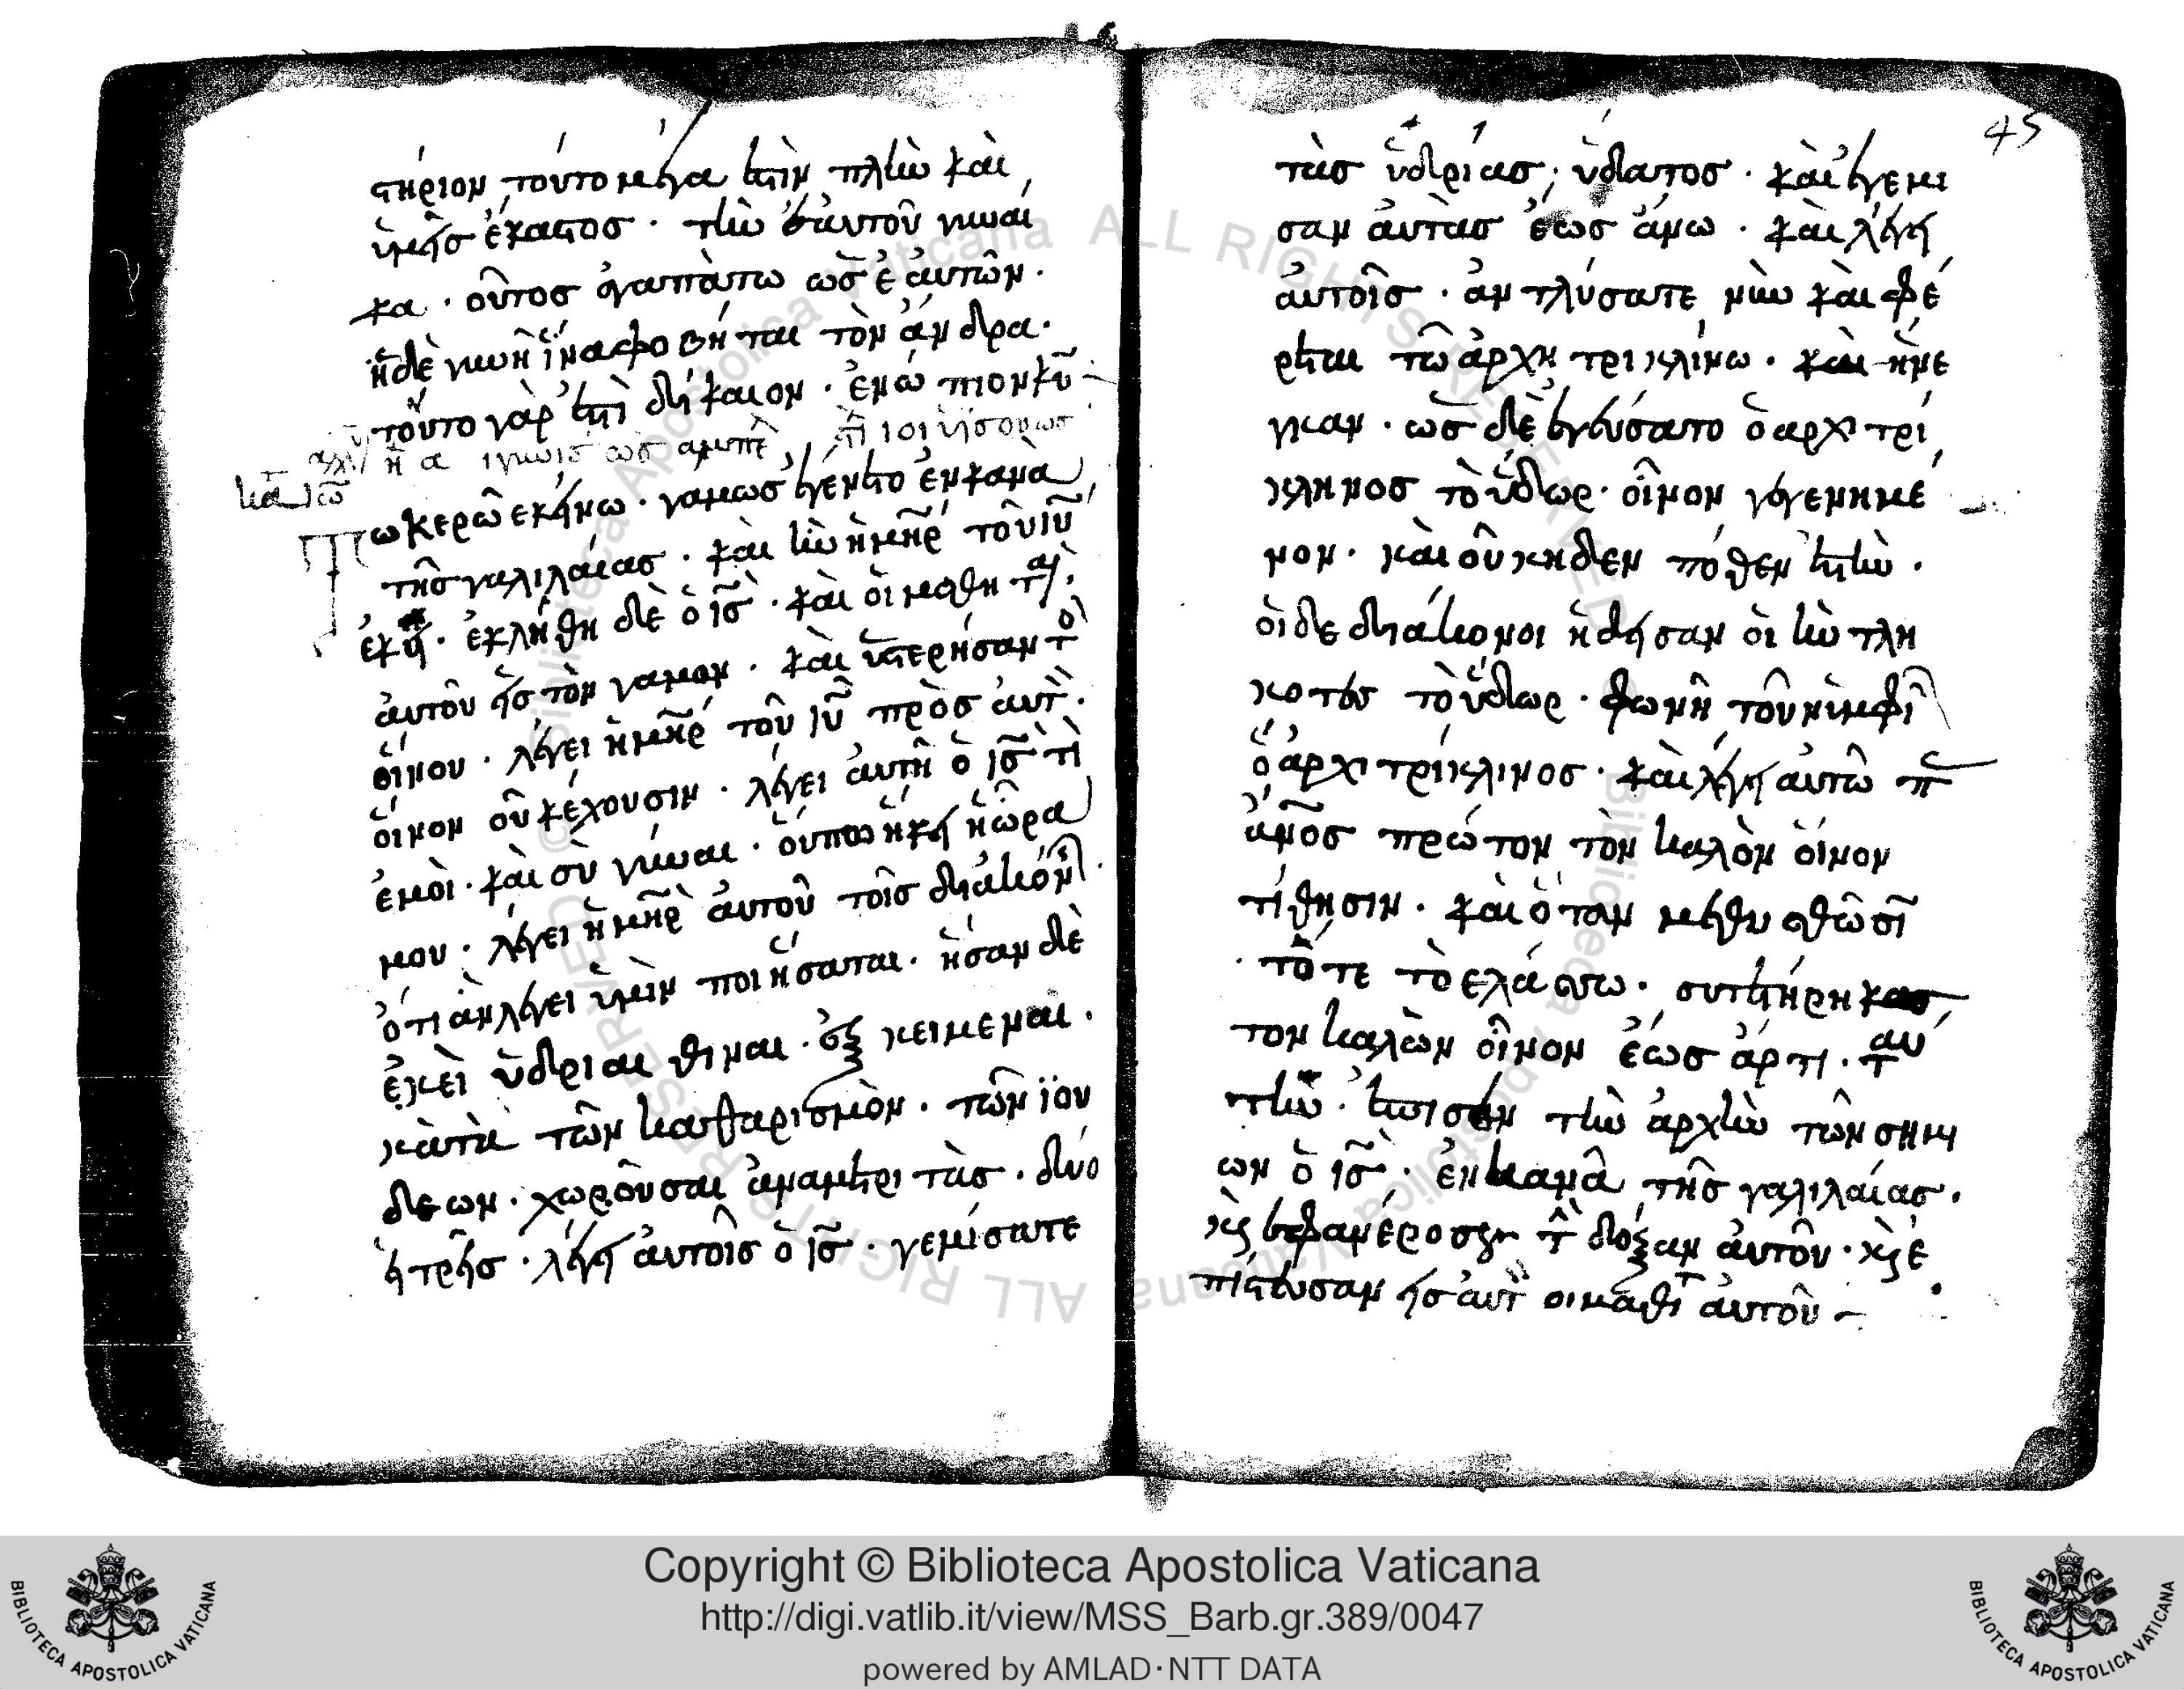 στήριον τούτο μέγα ἐστὶν πλὴν καὶ
ὑμῆς ἕκαστος · τὴν ἐαυτοῦ γυναί
κα · οὗτος ἀγαπάτω ὡς ἑἀυτῶν ·
ἡ δὲ γυνὴ ἵνα φοβήται τὸν ἄνδρα ·
τοῦτο γὰρ ἐστὶ δήκαιον · ἐνώπιον κῦ
ω κερῶ εκήνω · γαμως ἐγένετο ἐν κανὰ
τῆς γαλιλαίας · καὶ ἦν ἡ μηρ τοῦ ιυ
ἐκῆ · ἐκλήθη δὲ ὁ ις · καὶ οἱ μαθηταὶ
ἀυτοῦ ῆς τὸν γαμον · καὶ ὑστερήσαντο
οἴνου · λέγει ἡ μηρ τοῦ ιυ πρὸς ἀυτὸ ·
οἴνον οὐκ έχουσιν · λέγει ἀυτῆ ὁ ις τὶ
ἐμοὶ · καὶ σὺ γύναι · ούπω ήκη ἡ ὥρα
μου · λέγει ἡ μηρ ἀυτοῦ τοῖς διάκονοι
ὅτι ἀν λέγει ὑμὶν ποιήσαται · ἦσαν δὲ
ἐκεὶ ὑδριαι θιναι · ἑξ κειμεναι ·
κὰτὰ τῶν καθαρισμὸν · τῶν ϊου
δεων · χωροῦσαι ἀναμετριτὰς · δύο
ή τρῆς · λέγη ἀυτοῖς ὁ ις · γεμίσατε
45
τὰς ὑδρίας ὑδατος · καὶ ἐγεμι
σαν ἀυτὰς ἕως ἄνω · καὶ λέγη
ἀυτοῖς · ἀντλύσατε νὺν καὶ φέ
ρεται τῶ ἀρχητρικλίνω · καὶ ήνε
γκαν · ὡς δὲ ἐγεύσατο ὁ αρχιτρί
κληνος τὸ ὕδωρ · οἶνον γέγενημέ
νον · καὶ οὐκ ηδεν πόθεν ἐστὶν ·
οἱ δε διάκονοι ήδησαν οἱ ἠντλη
κοτές τὸ ὕδωρ · φωνῆ τοῦ νὶμφί
ὁ ἀρχιτρίκλινος · καὶ λέγη αυτῶ π
ἀνος πρώτον τὸν καλὸν οἴνον
τίθησιν · καὶ ὅταν μέθυσθῶσι
τότε τὸ ελάσσω · συ τετήρηκας
τον καλὼν οἶνον ἕως ἄρτι · ταύ
την · ἐποισέν τὴν ἀρχὴν τῶν σημι
ων ὁ ις · ἐν κανᾶ τῆς γαλιλαίας ·
κς ἐφανέροσεν τ δόξαν ἀυτοῦ · κς ἐ
πίστευσαν ῆς ἀυτ οι μαθτ ἀυτοῦ –
Copyright © Biblioteca Apostolica Vaticana
http://digi.vatlib.it/view/MSS_Barb.gr.389/0047
powered by AMLAD·NTT DATA
BIBLIOTECA APOSTOLICA VATICANA
BIBLIOTECA APOSTOLICA VATICANA